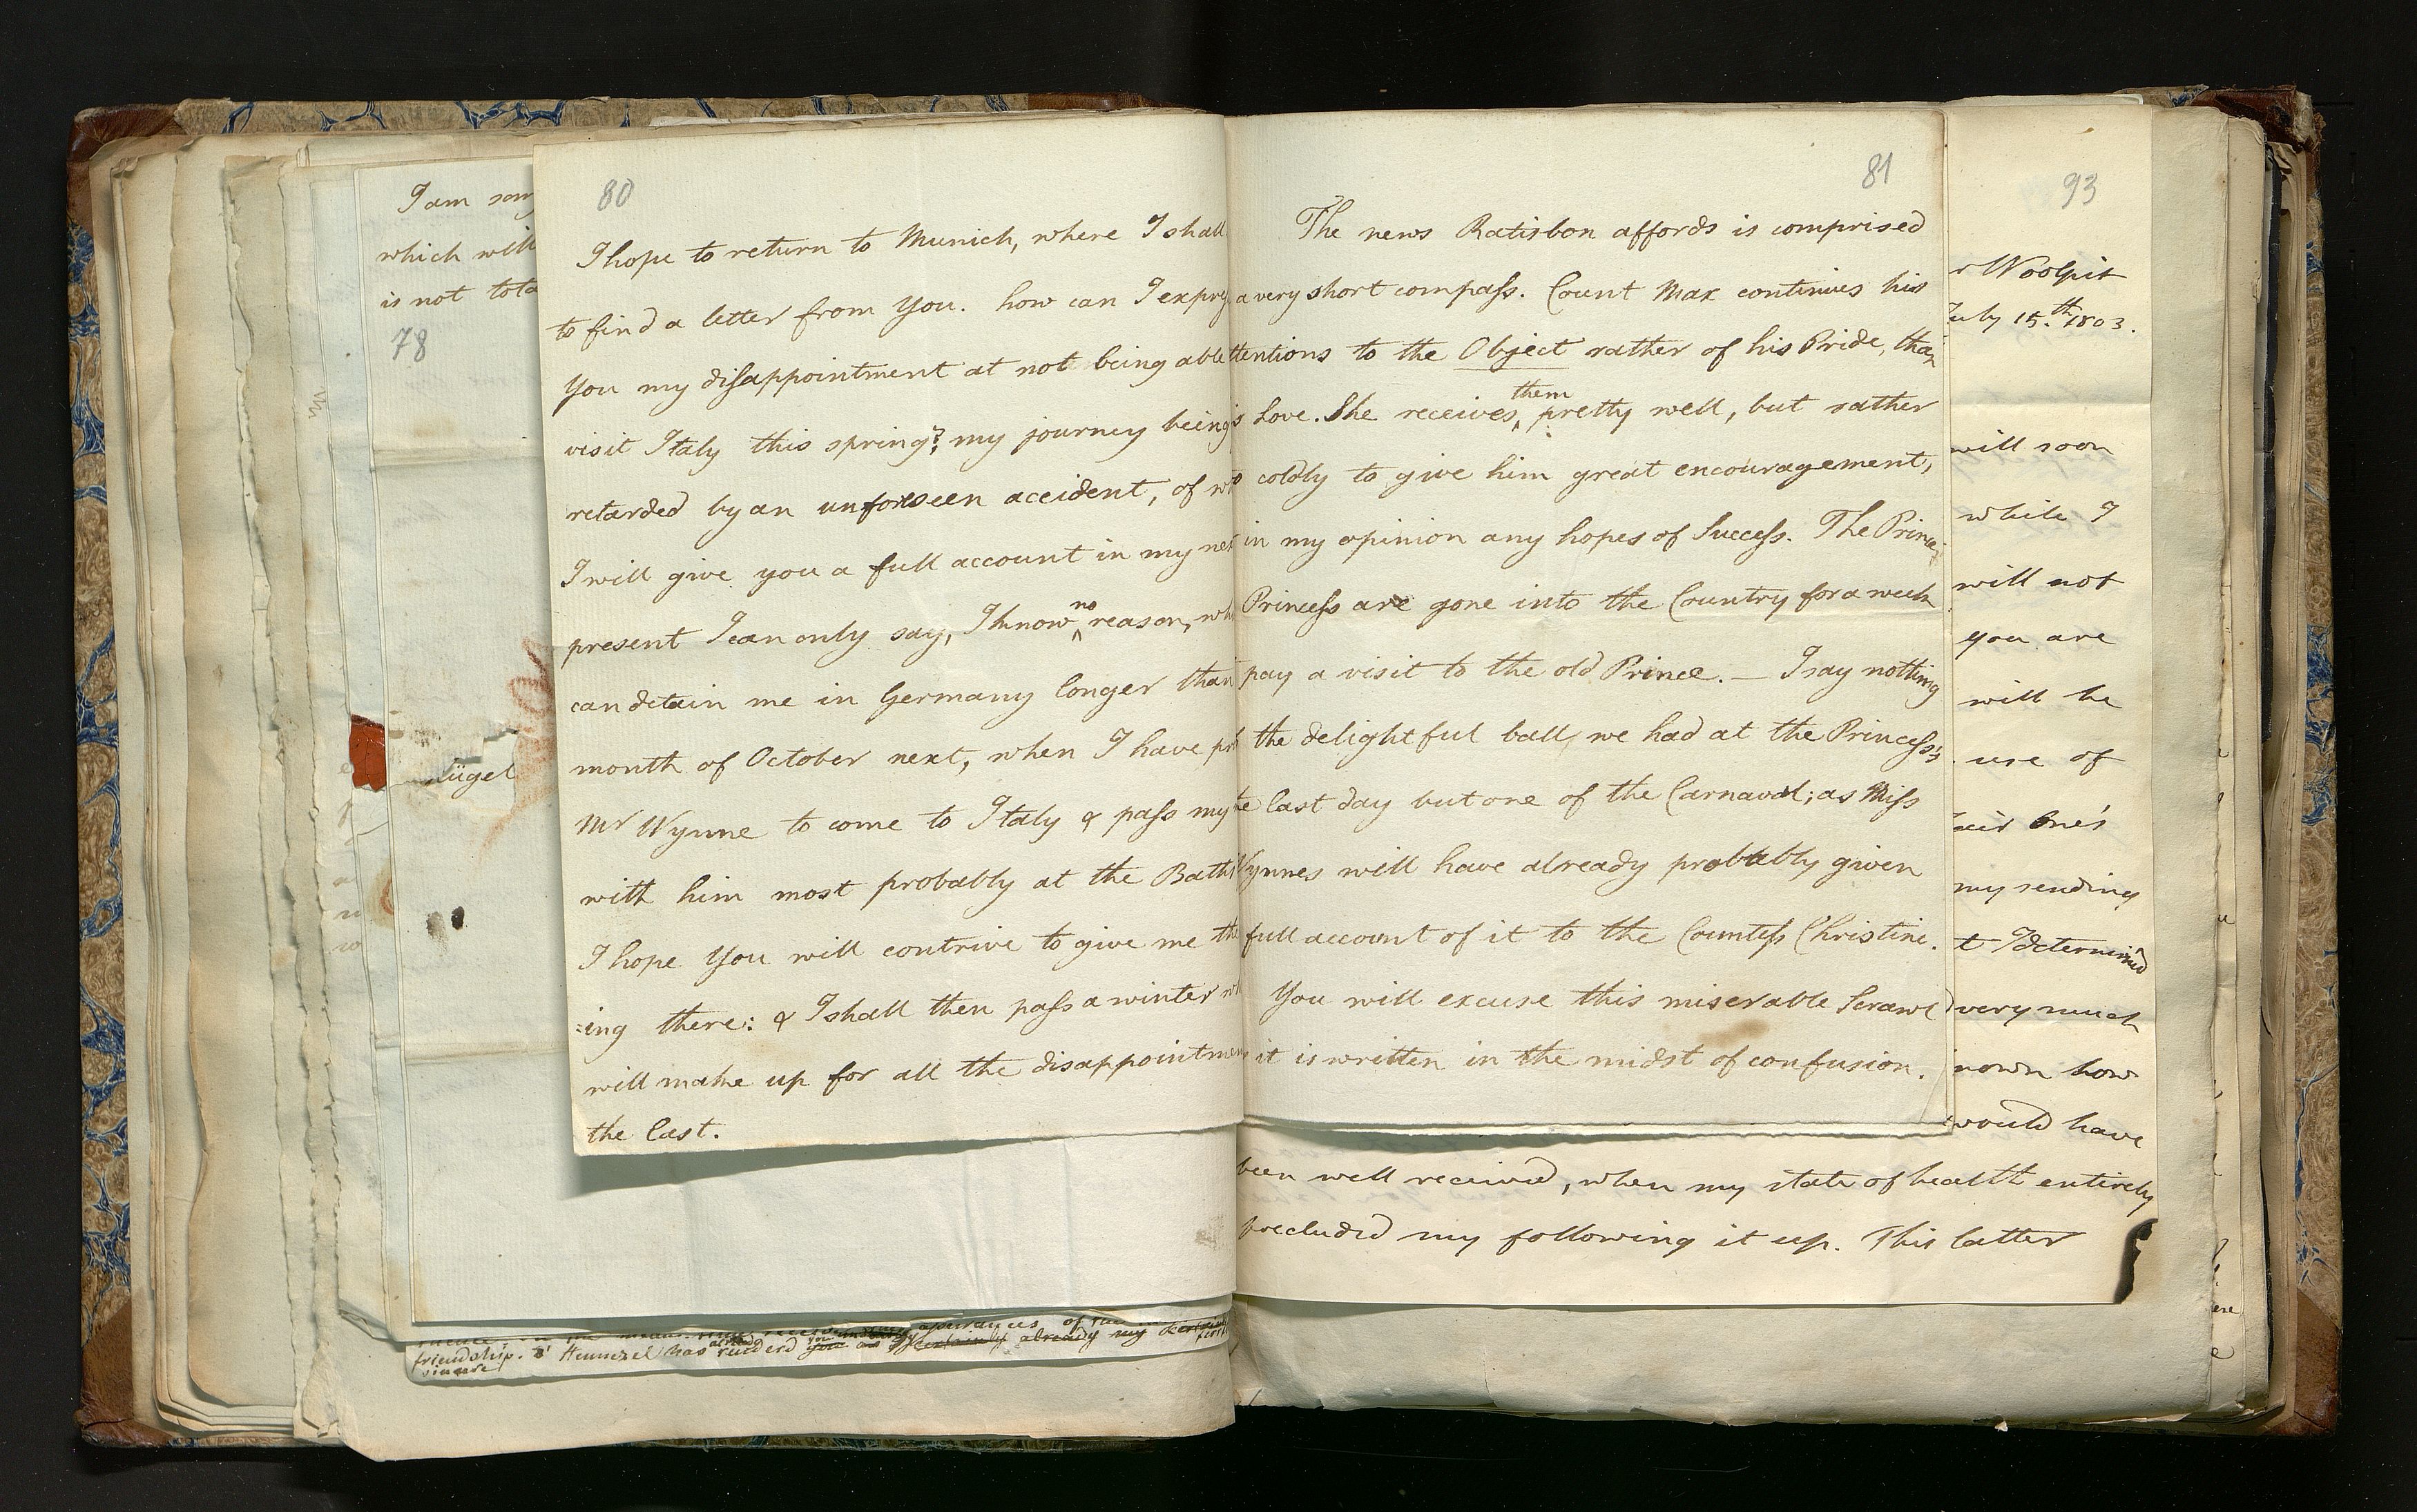 I am
which will
is not
78
80
I hope to return to Munich, where I shall
to find a letter from You. how can I
You my disappointment at not being able
visit Italy this spring? my journey being
retarded by an unforeseen accident, of
I will give you a full account in my
present I can only say, I know no reason,
can detain me in Germany longer than
month of October next, when I have
Mr Wynne to come to Italy & pass my
with him most probably at the Baths
I hope You will contrive to give me the
:ing there: & I shall then pass a winter
will make up for all the disappointment
the last.
81
The news Ratisbon affords is comprised
a very short compass. Count Max continues his
to the Object rather of his Pride, than
Love. She receives them pretty well, but rather
coldly to give him great encouragement,
in my opinion any hopes of Success. The
Princess are gone into the Country for a week
pay a visit to the old Prince. — I say nothing
the delightful ball, we had at the Princess's
last day but one of the Carnaval; as Miss
Wynnes will have already probably given
full account of it to the Countess Christine.
You will excuse this miserable Scrawl
it is written in the midst of confusion.
93
Woolpit
July 15.th 1803.
will soon
while I
will not
you are
will be
use of
One's
my sending
I determined
very much
how
would have
been well received, when my state of health entirely
precluded my following it up. This latter
friendship. Hummel has already my
sincere